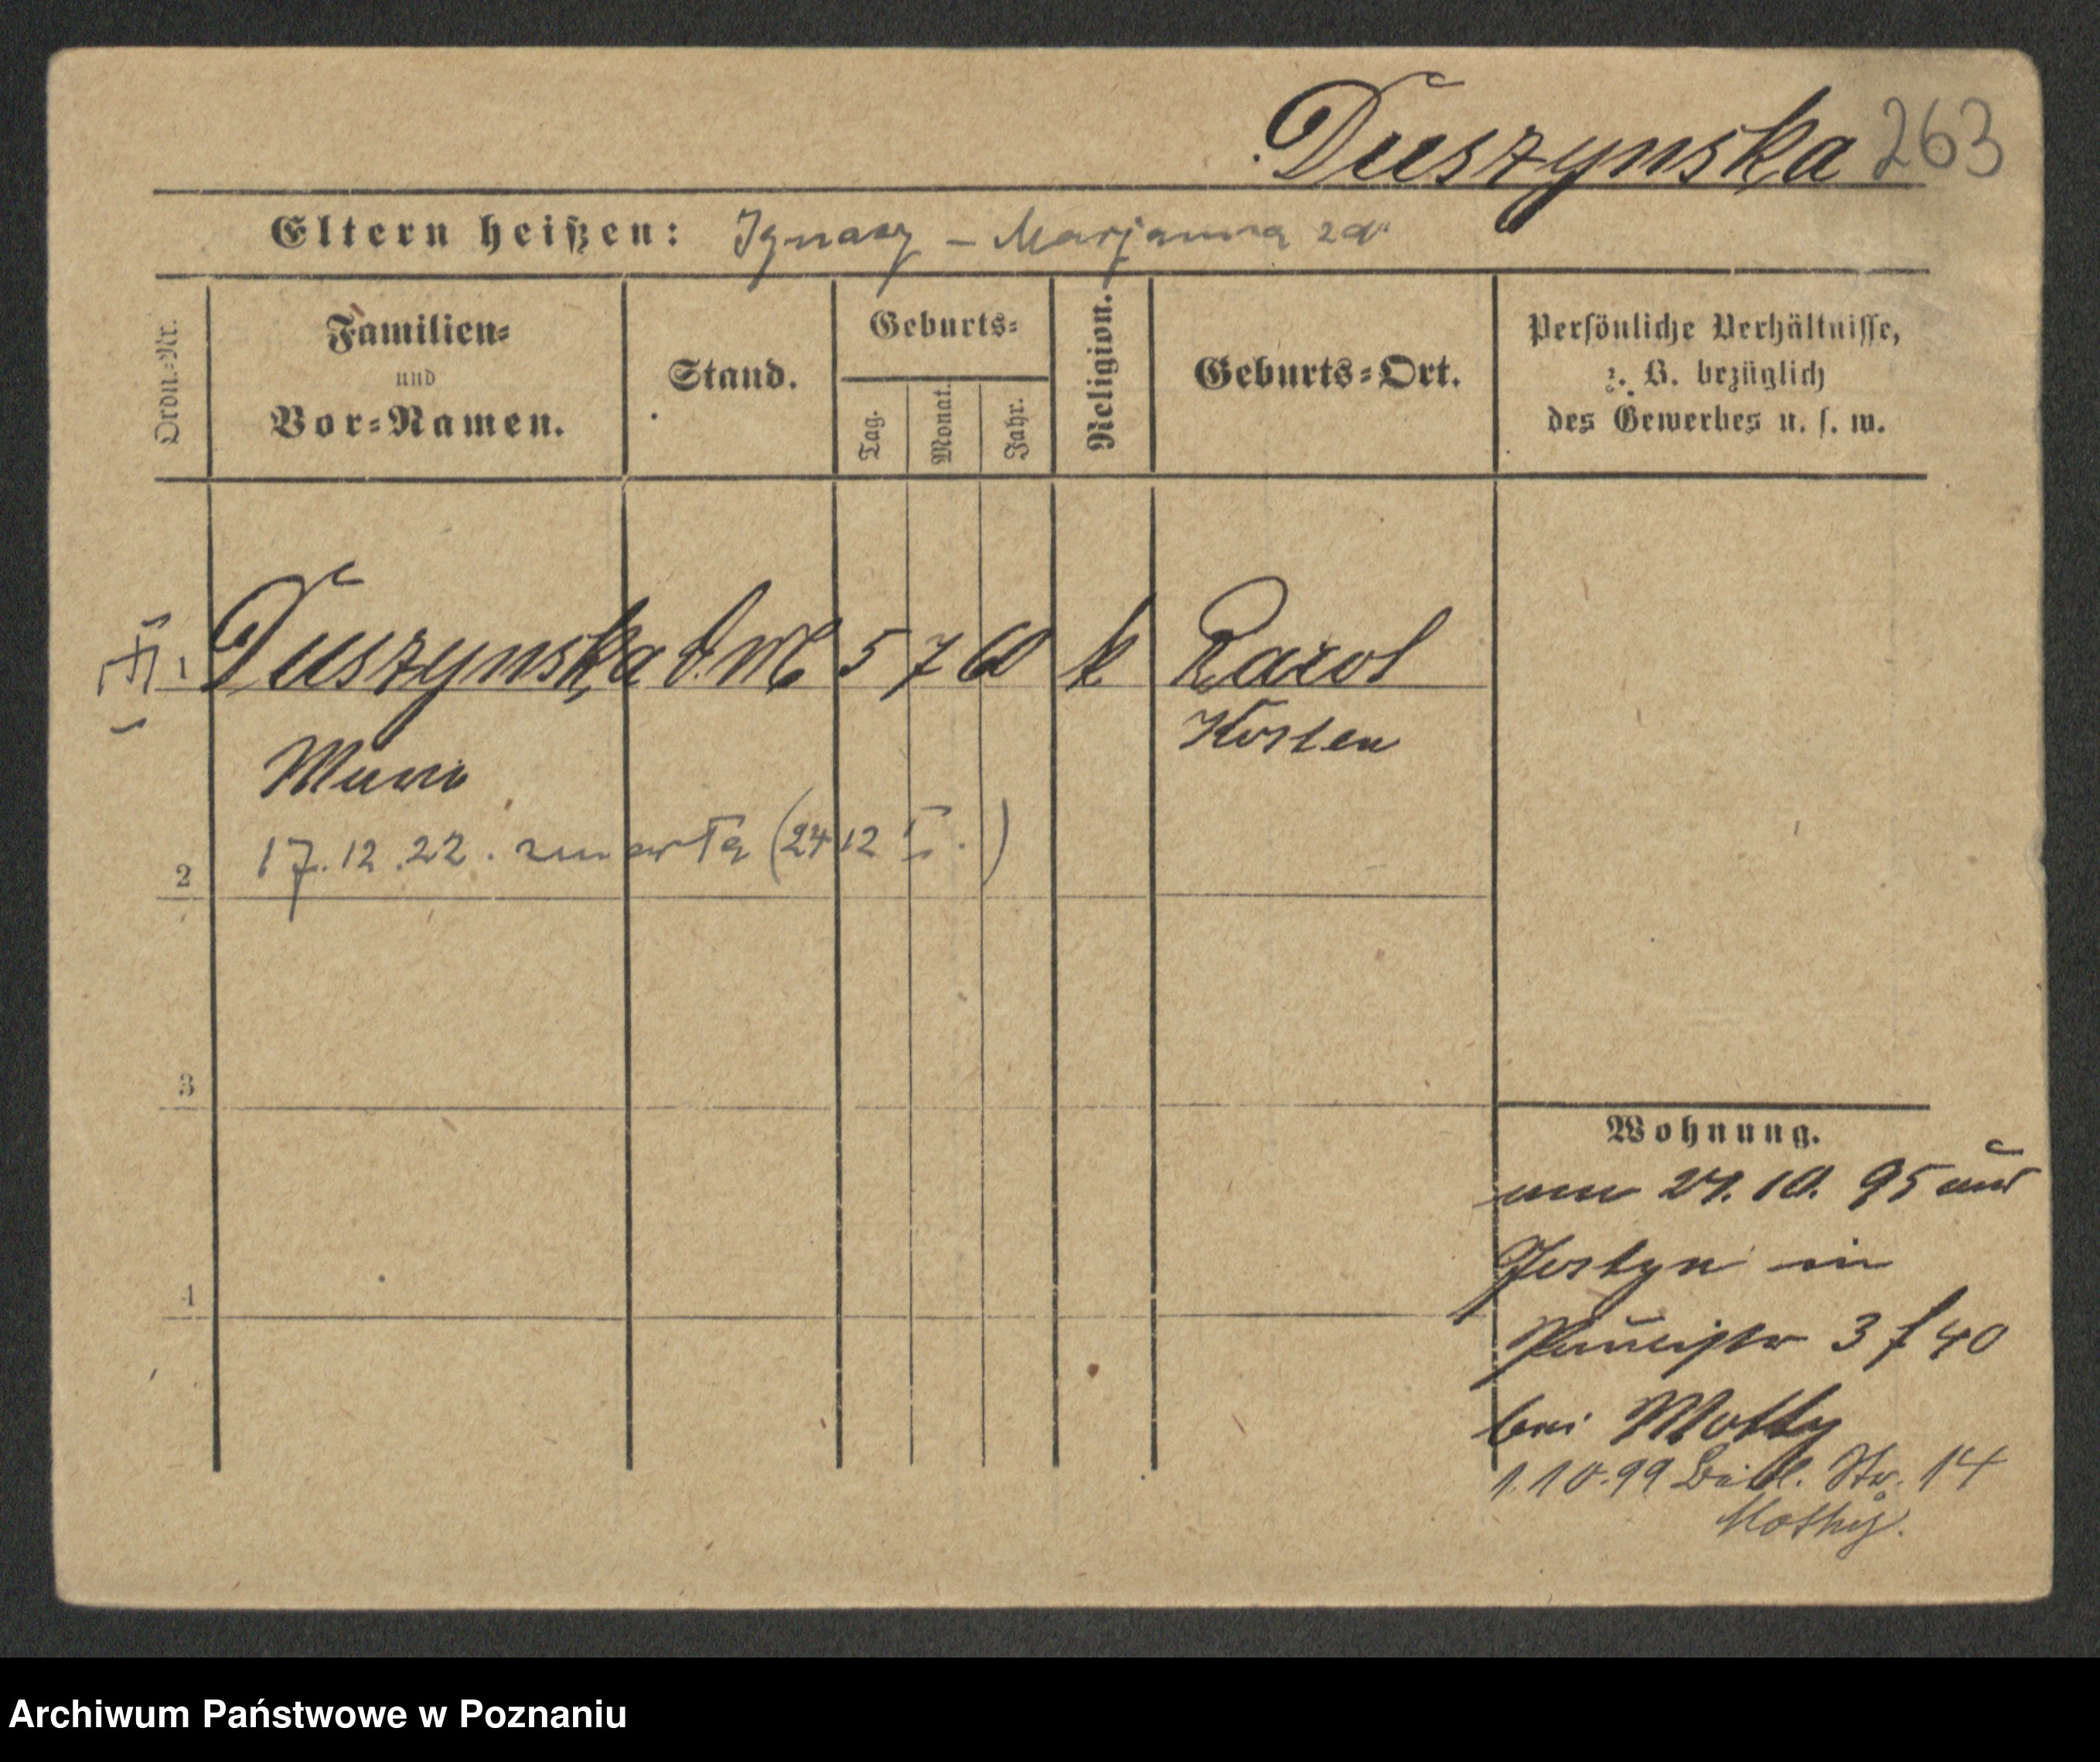 Duszynska 263
Eltern heißen: Ignacy – Marjanna zd.
Ordn.-Nr.
Familien-
und
Vor-Namen.
Stand.
Geburts-
Tag.
Monat.
Jahr.
Religion.
Geburts-Ort.
Persönliche Verhältnisse,
z. B. bezüglich
des Gewerbes u. s. w.
1 Duszynska 5 7 60 k Karol
Kosten
17.12.22. zmarła (24 12 .)
2
3
4
Wohnung.
am 24. 10. 95 aus
Gostyn in
3 f 40
bei Motty
1.10.99 Str. 14
Motty.
Archiwum Państwowe w Poznaniu